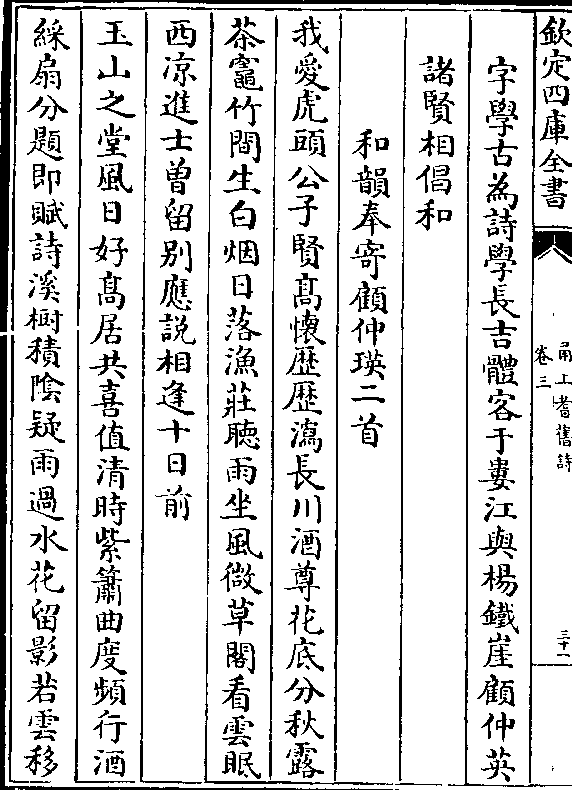 欽定四庫全書
甬上耆舊詩
卷三
三十一
字學古為詩學長吉體客于婁江與楊鐵崖顧仲英
諸賢相倡和
和韻奉寄顧仲瑛二首
我愛虎頭公子賢髙懷歴歴瀉長川酒尊花底分秋露
茶竈竹間生白烟日落漁莊聽雨坐風微草閣看雲眠
西凉進士曾留别應説相逢十日前
玉山之堂風日好髙居共喜值清時紫簫曲度頻行酒
綵扇分題即賦詩溪樹積陰疑雨過水花留影若雲移